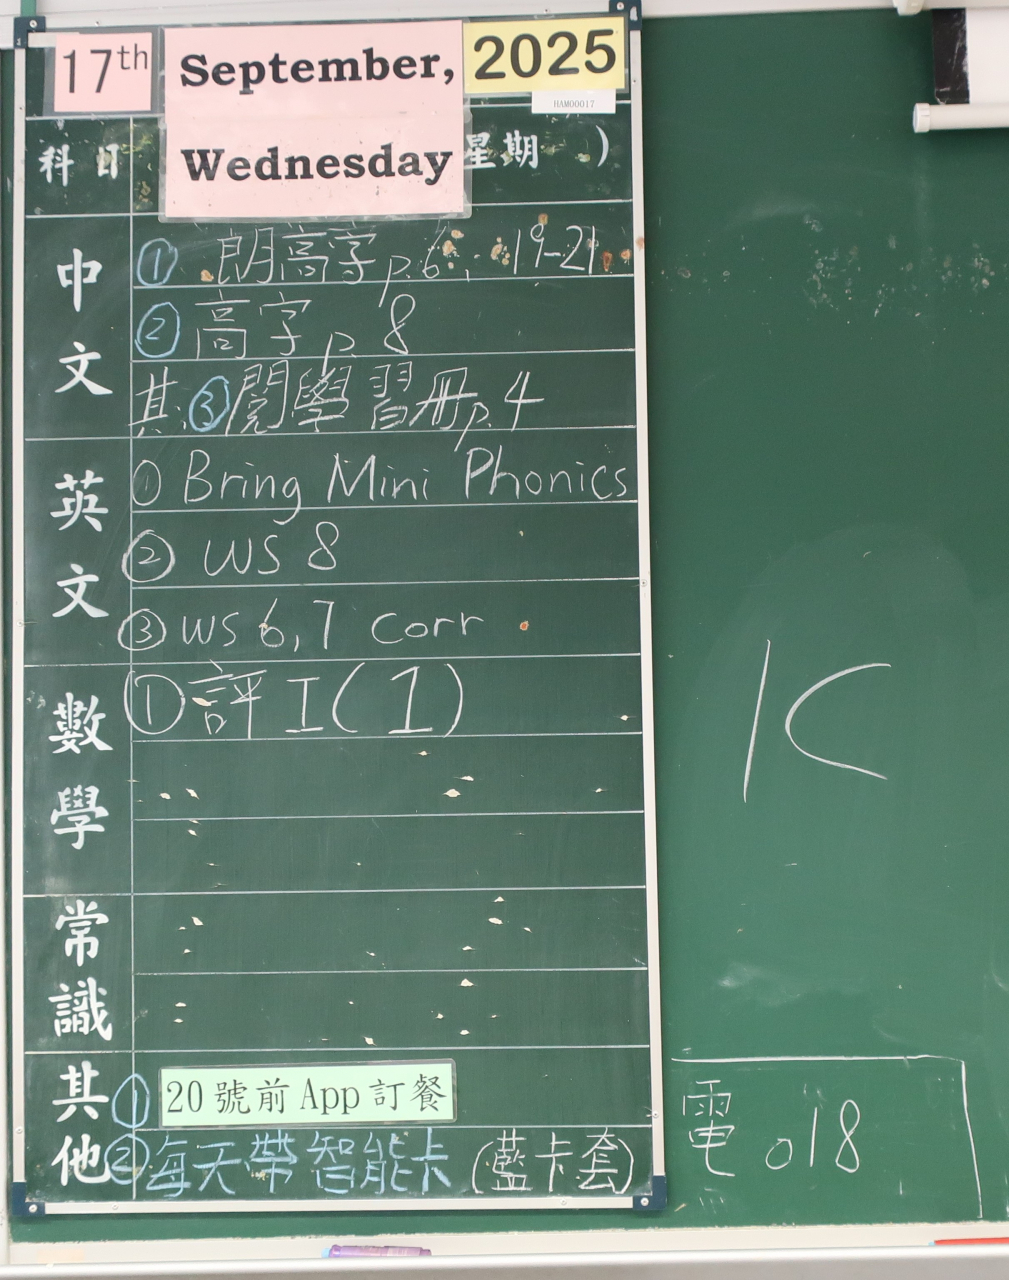 17th September, 2025
HAM00017
Wednesday
科目 星期 )
中文
① 朗高字 p.6, 19-21
② 高字 p. 8
其 ③ 閱學習冊 p.4
英文
① Bring Mini Phonics
② WS 8
③ WS 6,7 corr
數學
① 評 I(1)
1C
常識
其他
① 20號前App訂餐
② 每天帶智能卡 (藍卡套)
電 018